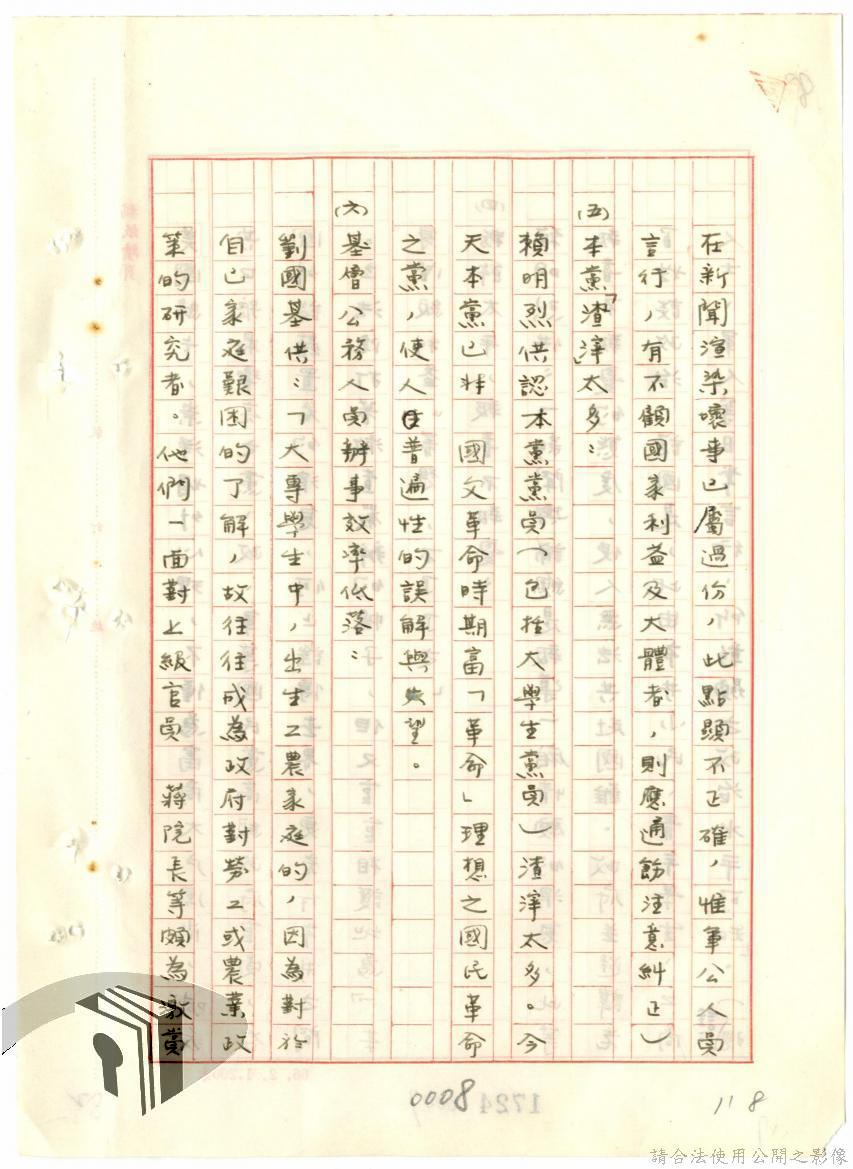 在新聞渲染壞事已屬過份，此點顯不正確，惟軍公人員
言行，有不顧國家利益及大體者，則應通飭注意糾正）
㈤本黨「渣滓」太多：
賴明烈供認本黨黨員（包括大學生黨員）渣滓太多。今
天本黨已非　國父革命時期富「革命」理想之國民革命
之黨，使人民普遍性的誤解與失望。
㈥基層公務人員辦事效率低落：
劉國基供：「大專學生中，出生工農家庭的，因為對於
自己家庭艱困的了解，故往往成為政府對勞工或農業政
策的研究者。他們一面對上級官員　蔣院長等頗為激賞
0008
11 8
請合法使用公開之影像